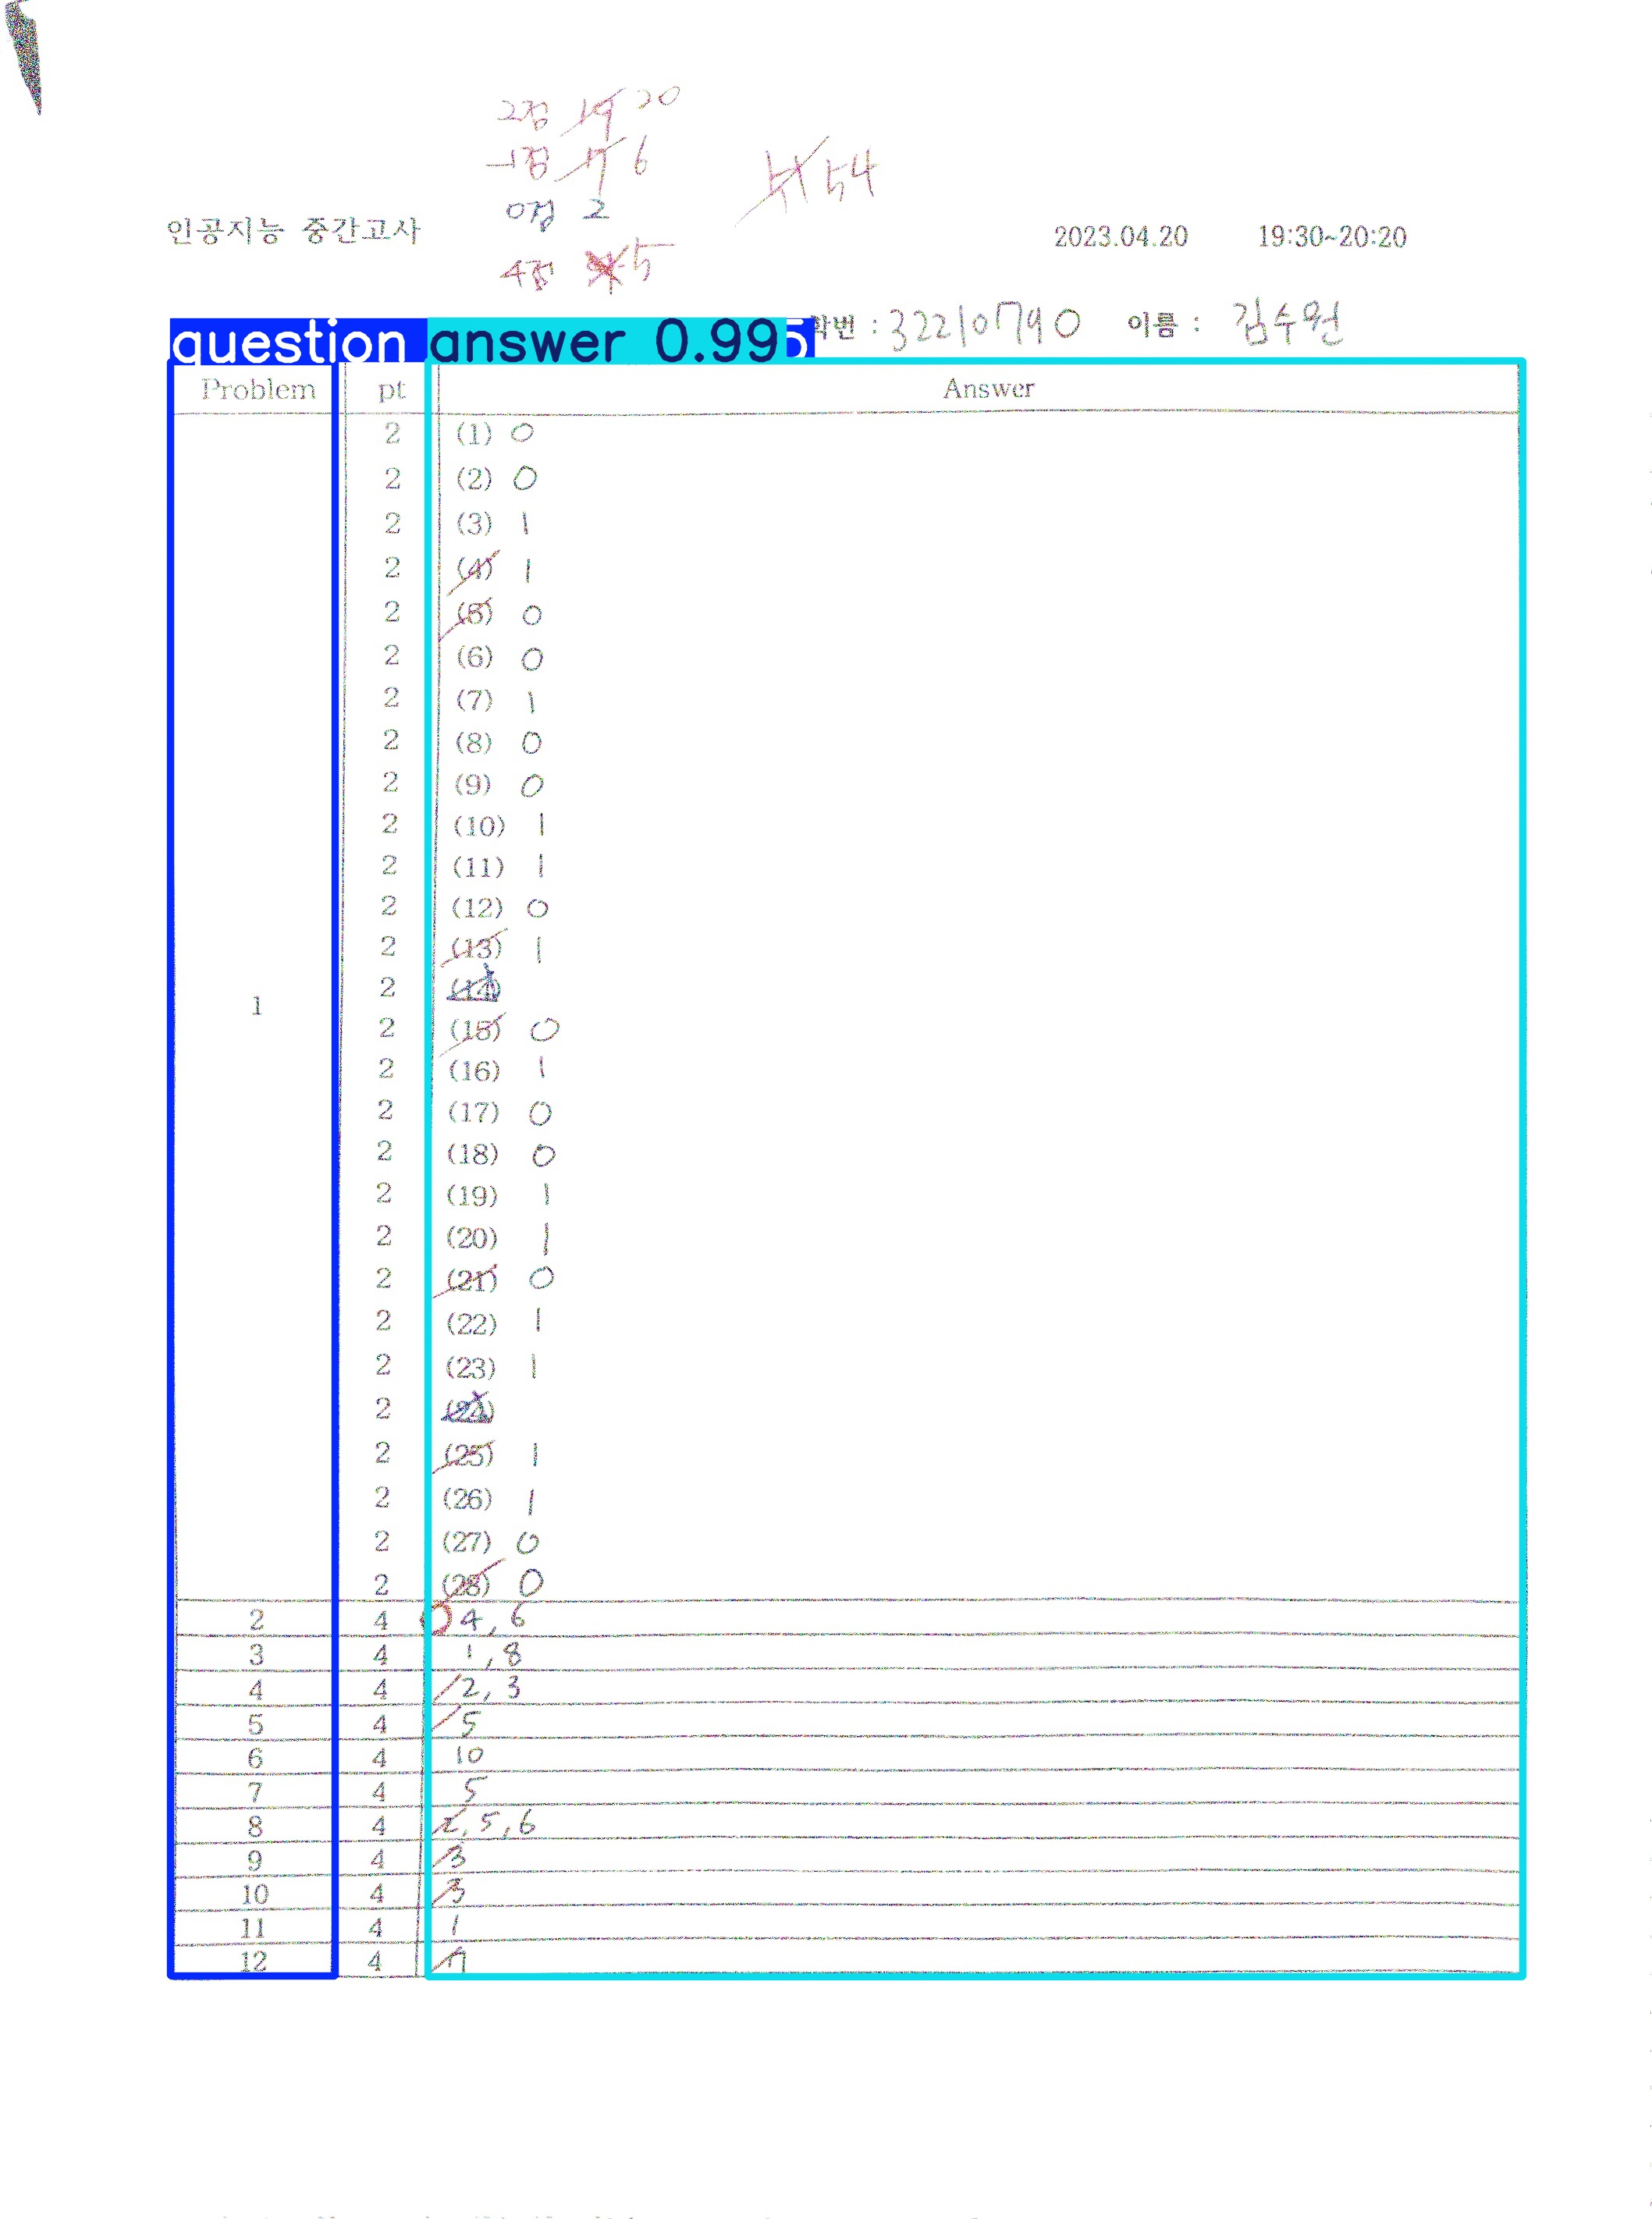 2점 19 20
-1점 7 6
51 54
0점 2
인공지능 중간고사
2023.04.20 19:30~20:20
4점 5
question answer 0.99 5
학번 : 32210790 이름 : 김수원
Problem pt Answer
2 (1) 0
2 (2) 0
2 (3) 1
2 (4) 1
2 (5) 0
2 (6) 0
2 (7) 1
2 (8) 0
2 (9) 0
2 (10) 1
2 (11) 1
2 (12) 0
2 (13) 1
1 2 (14)
2 (15) 0
2 (16) 1
2 (17) 0
2 (18) 0
2 (19) 1
2 (20) 1
2 (21) 0
2 (22) 1
2 (23) 1
2 (24)
2 (25) 1
2 (26) 1
2 (27) 0
2 (28) 0
2 4 4, 6
3 4 1, 8
4 4 2, 3
5 4 5
6 4 10
7 4 5
8 4 2, 5, 6
9 4 3
10 4 3
11 4 1
12 4 7